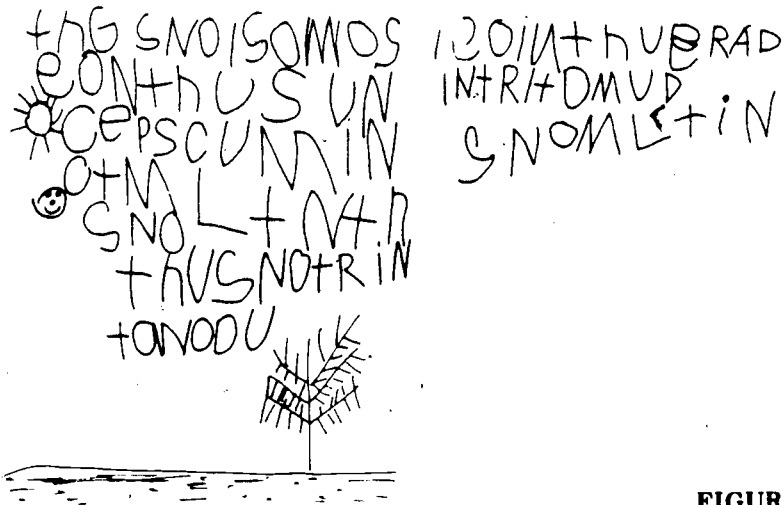 thG SNOISOMOS
EONthUS UN
CePSCUMIN
OtM
SNOLtNth
thUSNOtRiN
taNODU
ISOINthUBRAD
INtRItOMUD
SNOMLtiN
FIGUR